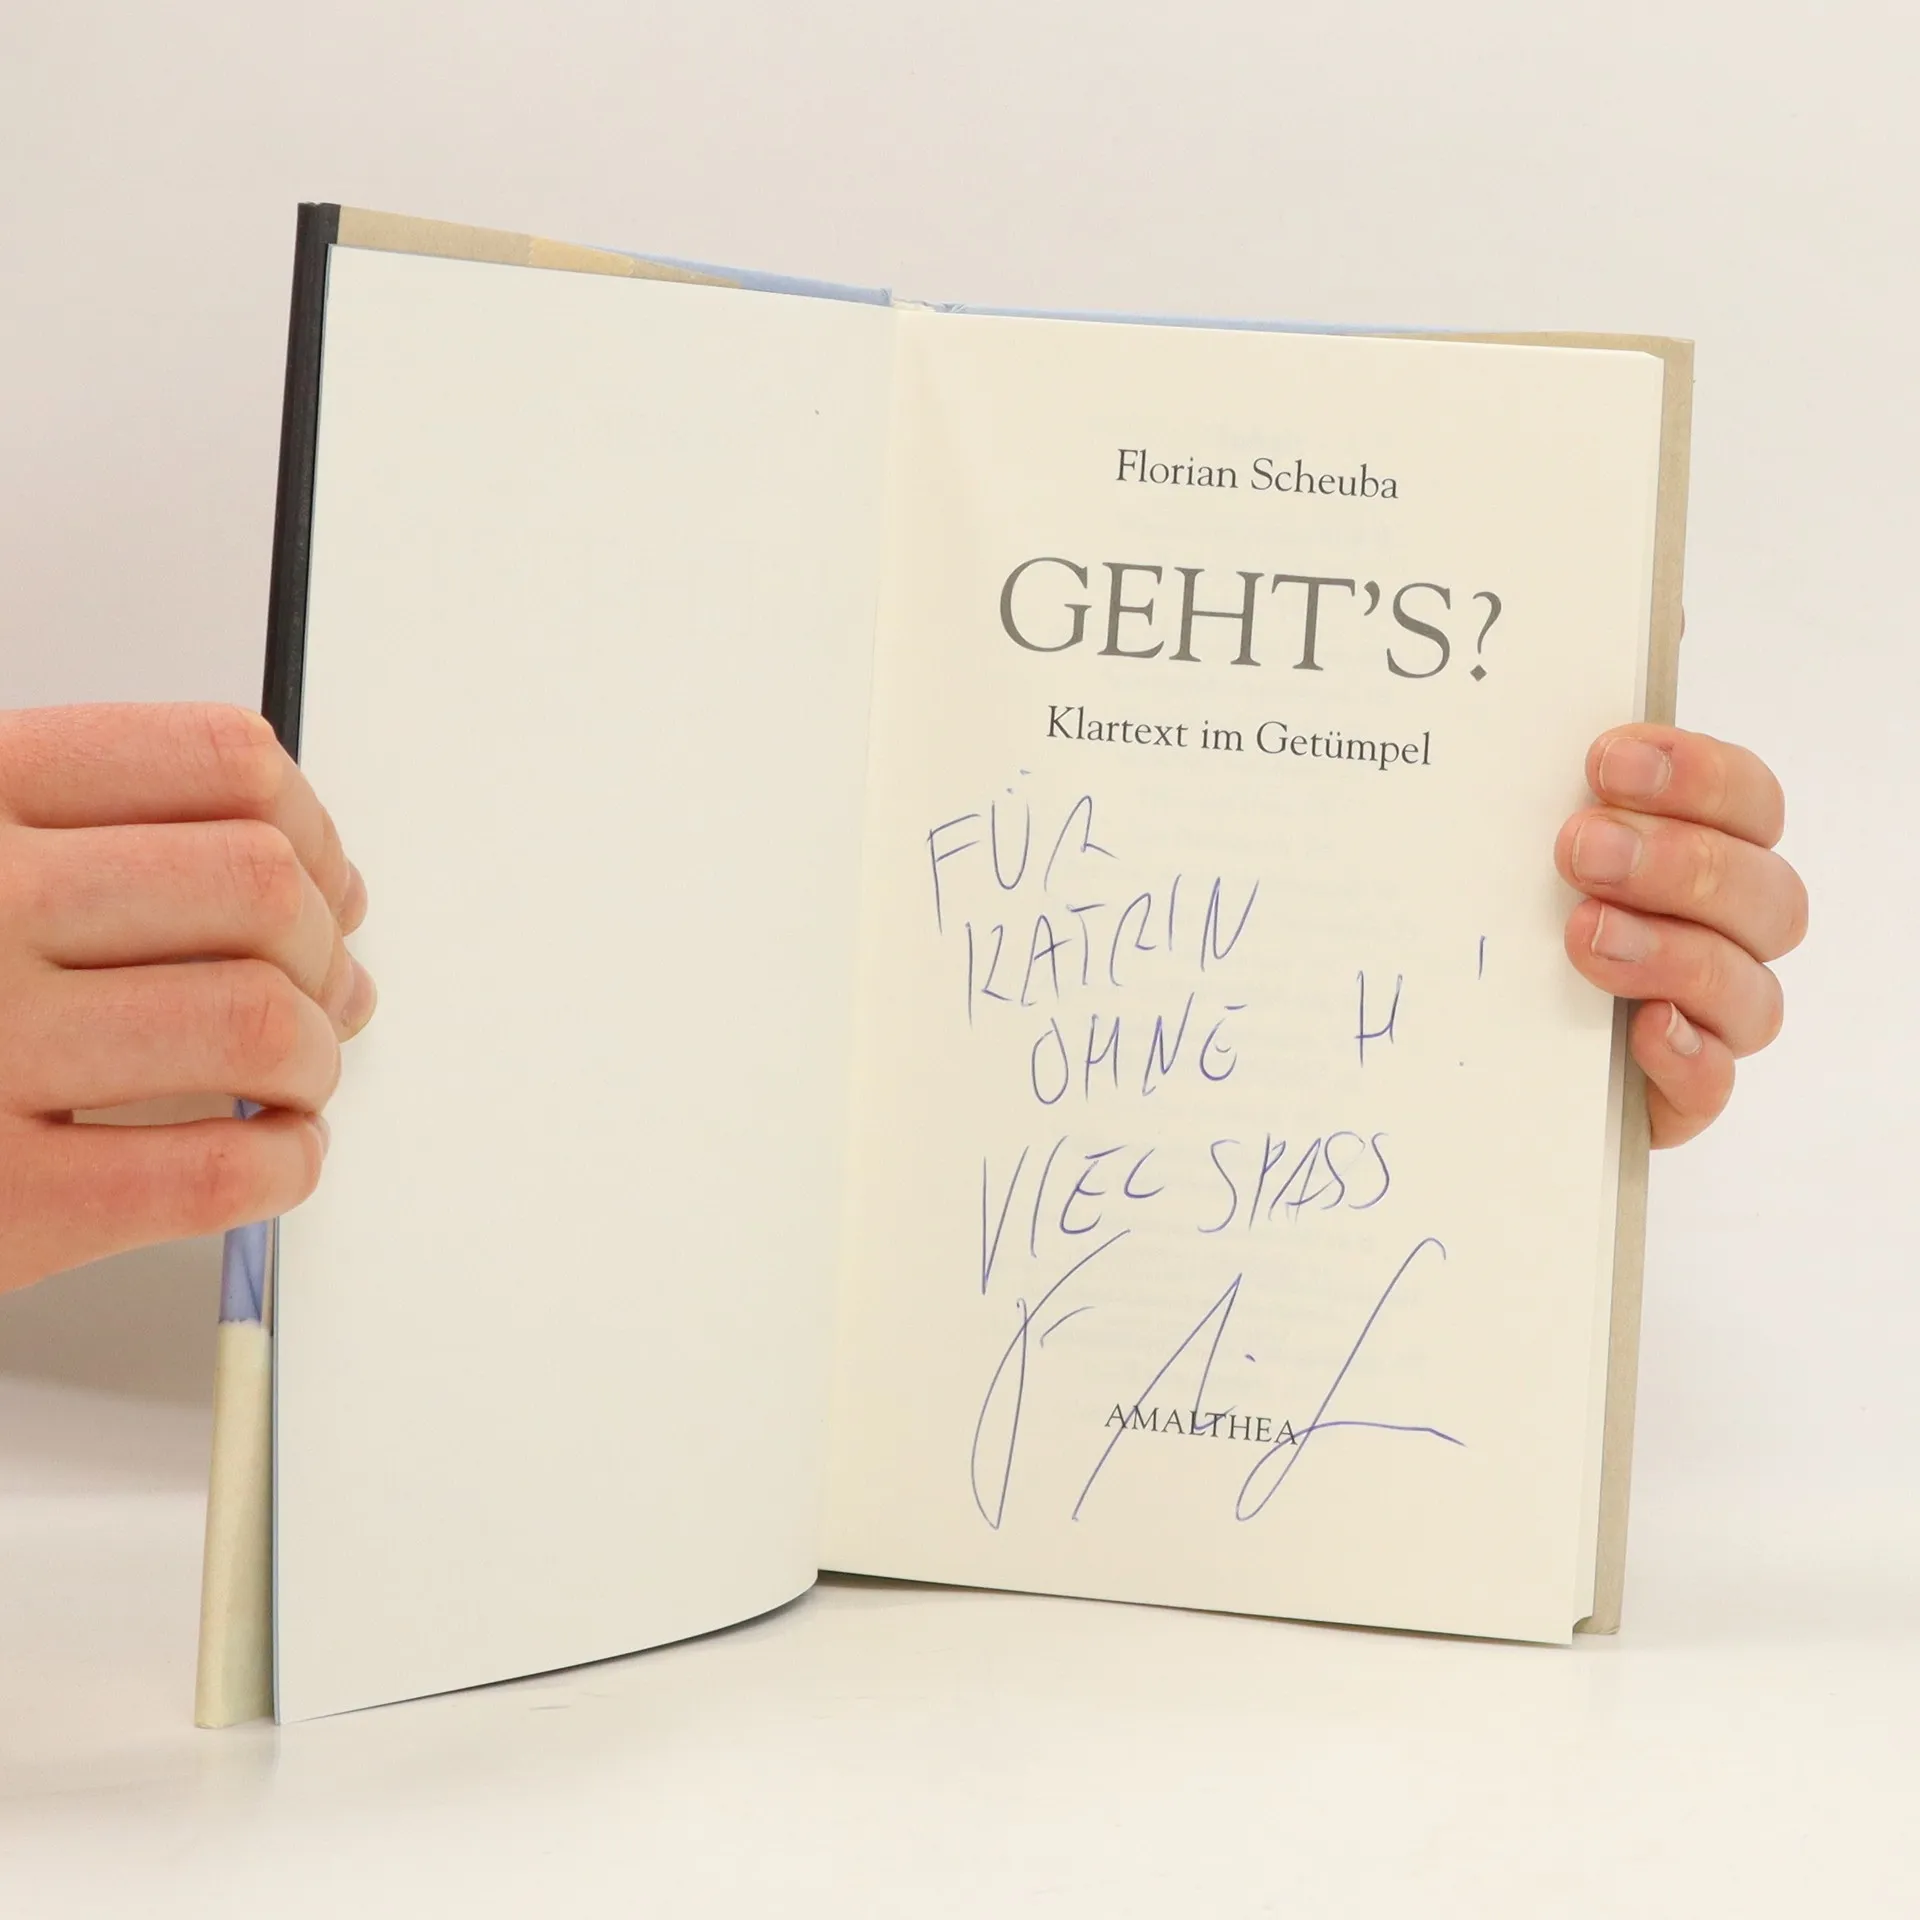 Florian Scheuba
GEHT'S?
Klartext im Getümpel
FÜR
KATRIN
OHNE H!
VIEL SPASS
AMALTHEA